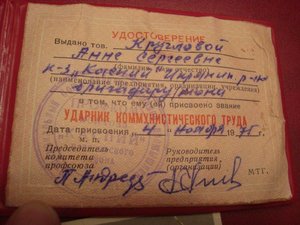 УДОСТОВЕРЕНИЕ
Выдано тов. Кругловой
(фамилия, имя,
Анне Сергеевне
к-з
(наименование предприятия, организации, учреждения)
бригадиру
в том, что ему (ей) присвоено звание
УДАРНИК КОММУНИСТИЧЕСКОГО ТРУДА
Дата присвоения 4 ноября 1975 г.
М. П.
Председатель комитета профсоюза
Руководитель предприятия (организации)
МТГ.